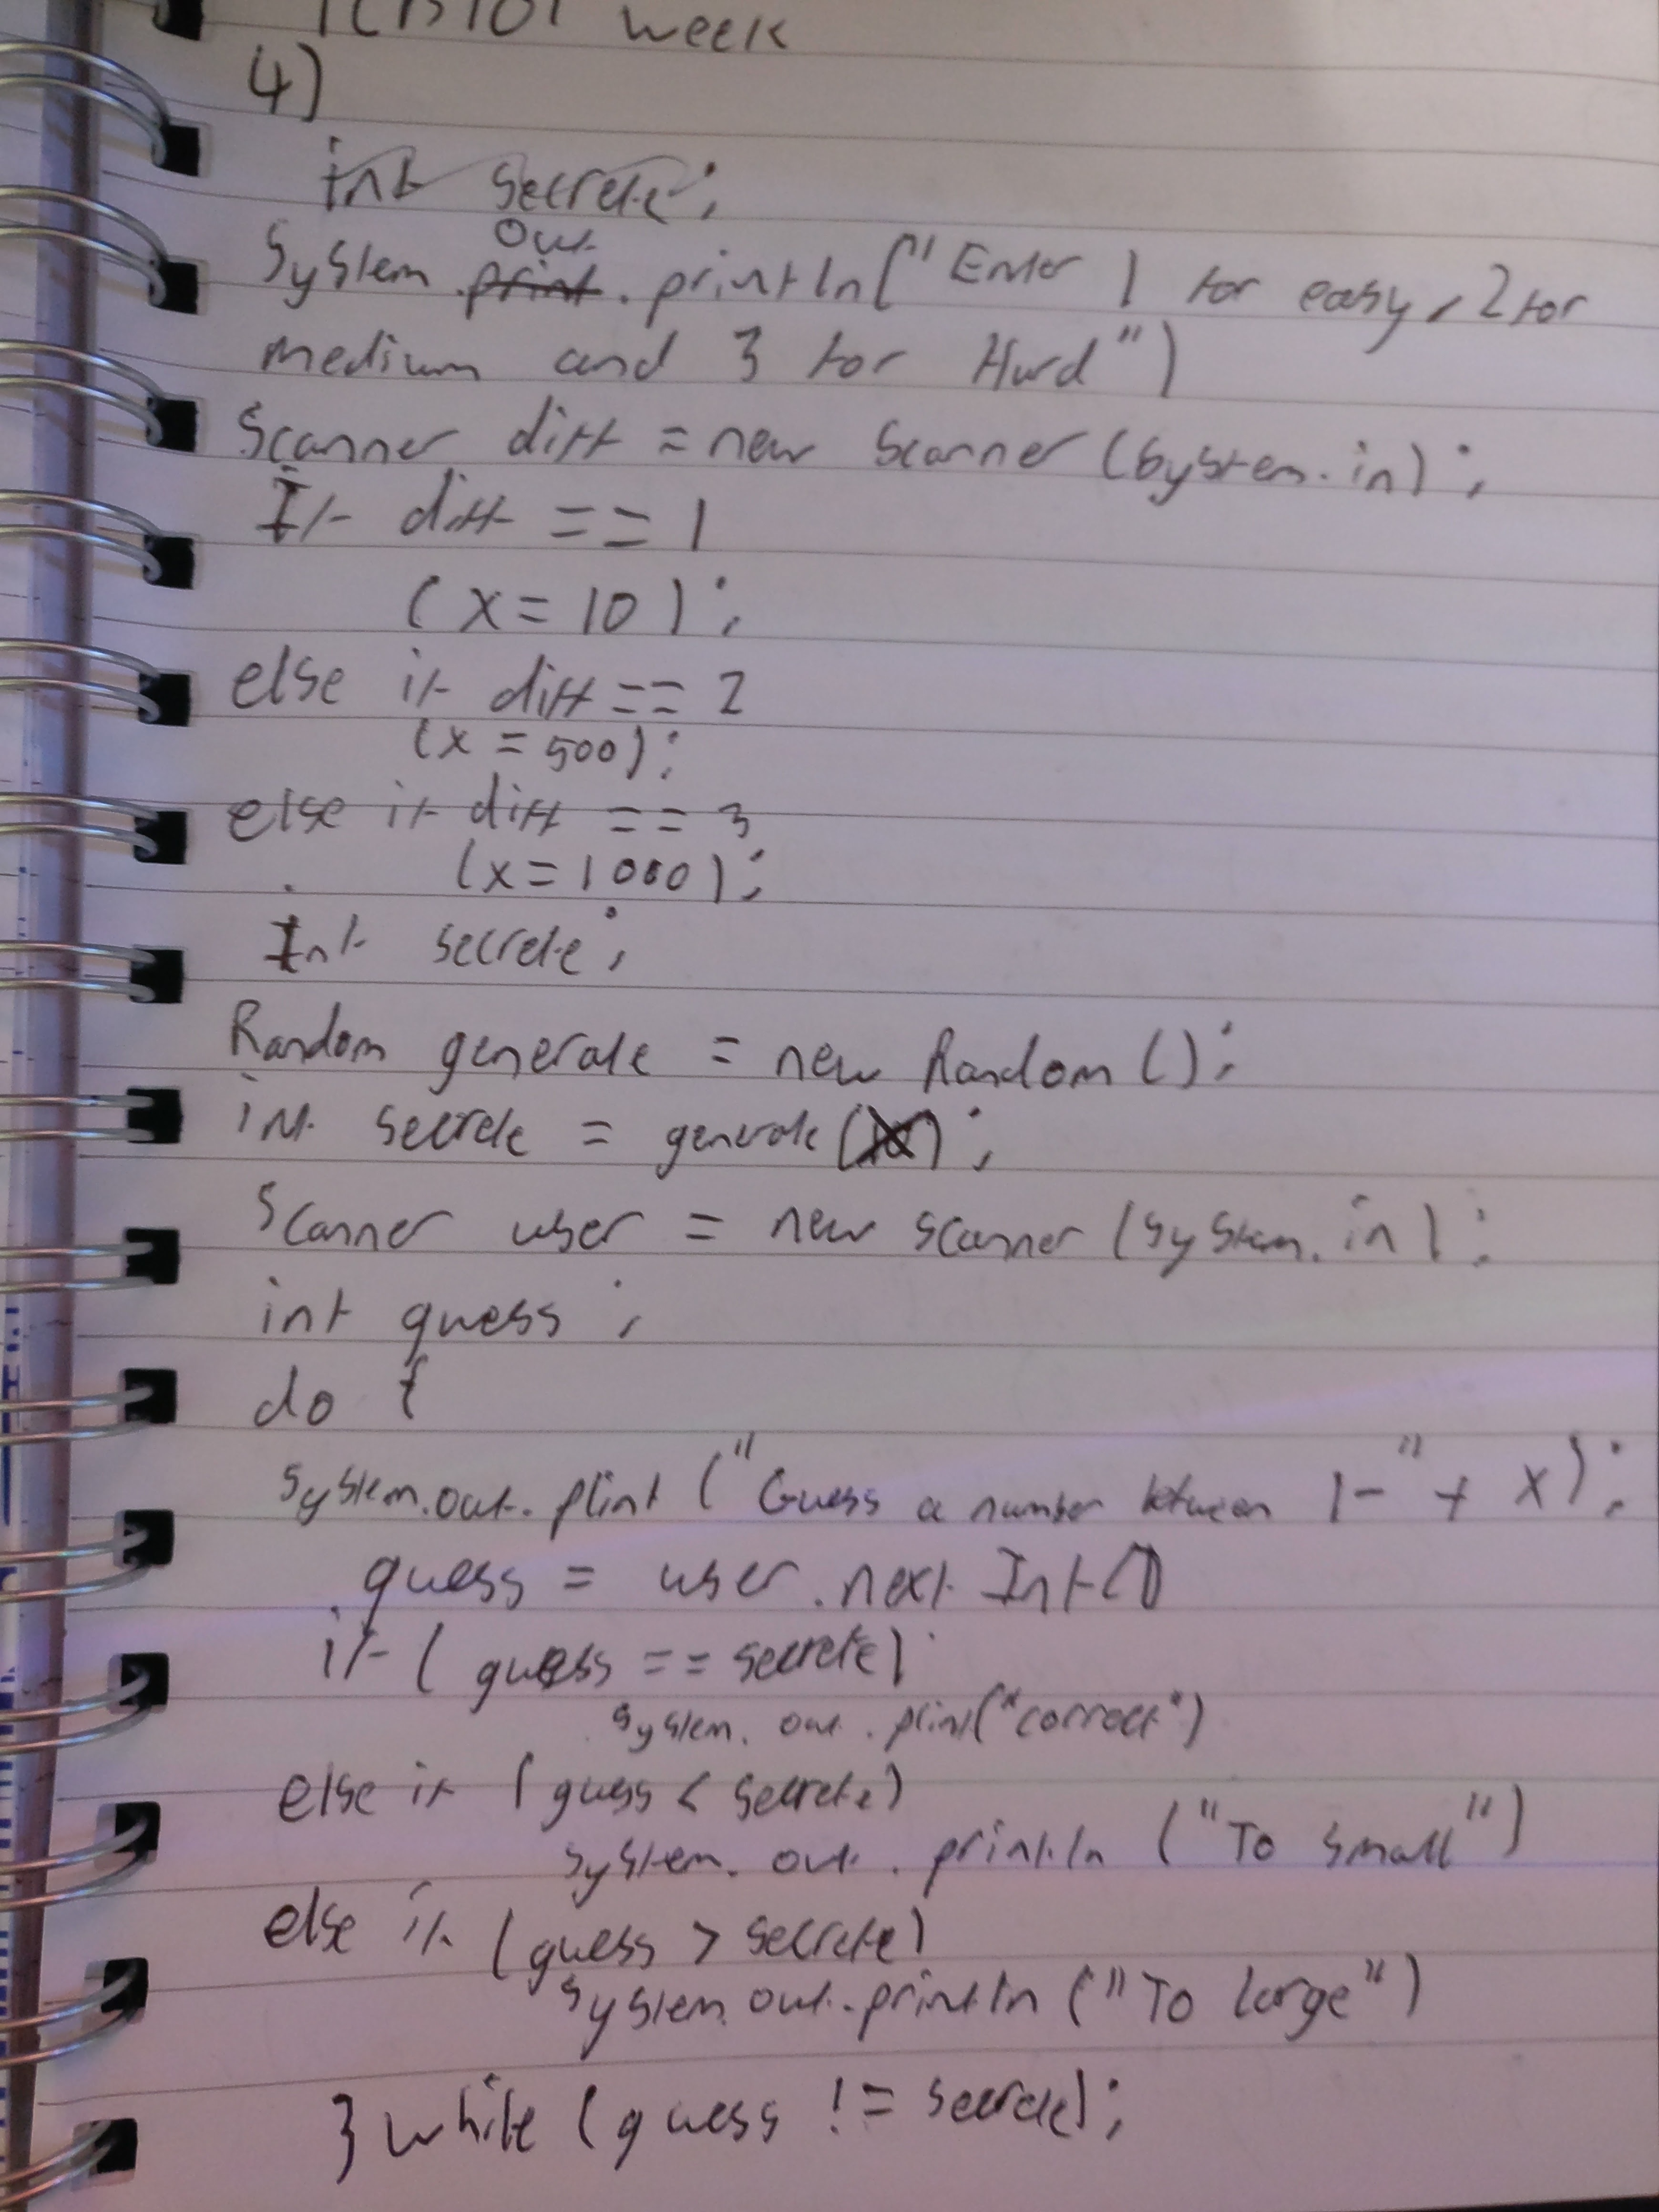 week
4)
int secrete;
out
System.print.println("Enter 1 for easy, 2 for
medium and 3 for Hard")
Scanner diff = new Scanner (System.in);
If diff == 1
(x = 10);
else if diff == 2
(x = 500);
else if diff == 3
(x = 1000);
Int secrete;
Random generate = new Random ();
int secrete = generate ( );
Scanner user = new scanner (System.in);
int guess ;
do {
System.out.print ("Guess a number between 1-" + x);
guess = user.next Int()
if ( guess == secrete)
System.out.print("correct")
else if (guess < secrete)
System.out.println ("To small")
else if (guess > secrete)
System.out.println ("To large")
} while (guess != secrete);